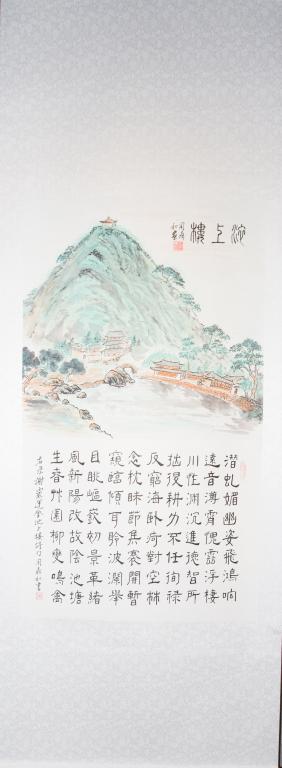 池上樓
潛虬媚幽姿飛鴻响
遠音薄霄愧雲浮棲
川怍淵沉進德智所
拙退耕力不任徇祿
反窮海卧痾對空林
衾枕昧節候褰開暫
窺臨傾耳聆波瀾舉
目眺嶇嶔初景革緒
風新陽改故陰池塘
生春艸園柳變鳴禽
謝靈運登池上樓詩句